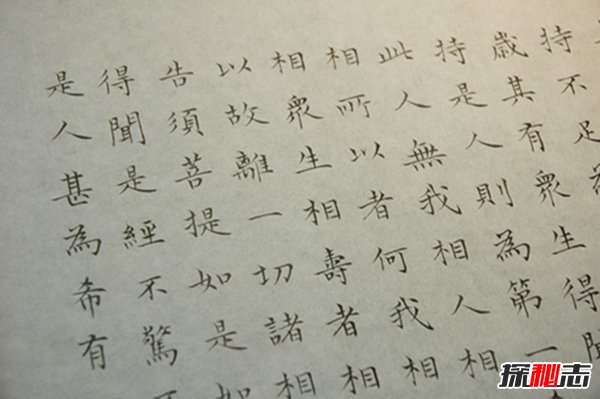 持不足為
歳其有衆生得聞
持是人則為第一
此人無我相人相
相所以者何我相
相衆生相壽者相
以故離一切諸相
告須菩提如是如
得聞是經不驚不
是人甚為希有
探秘志